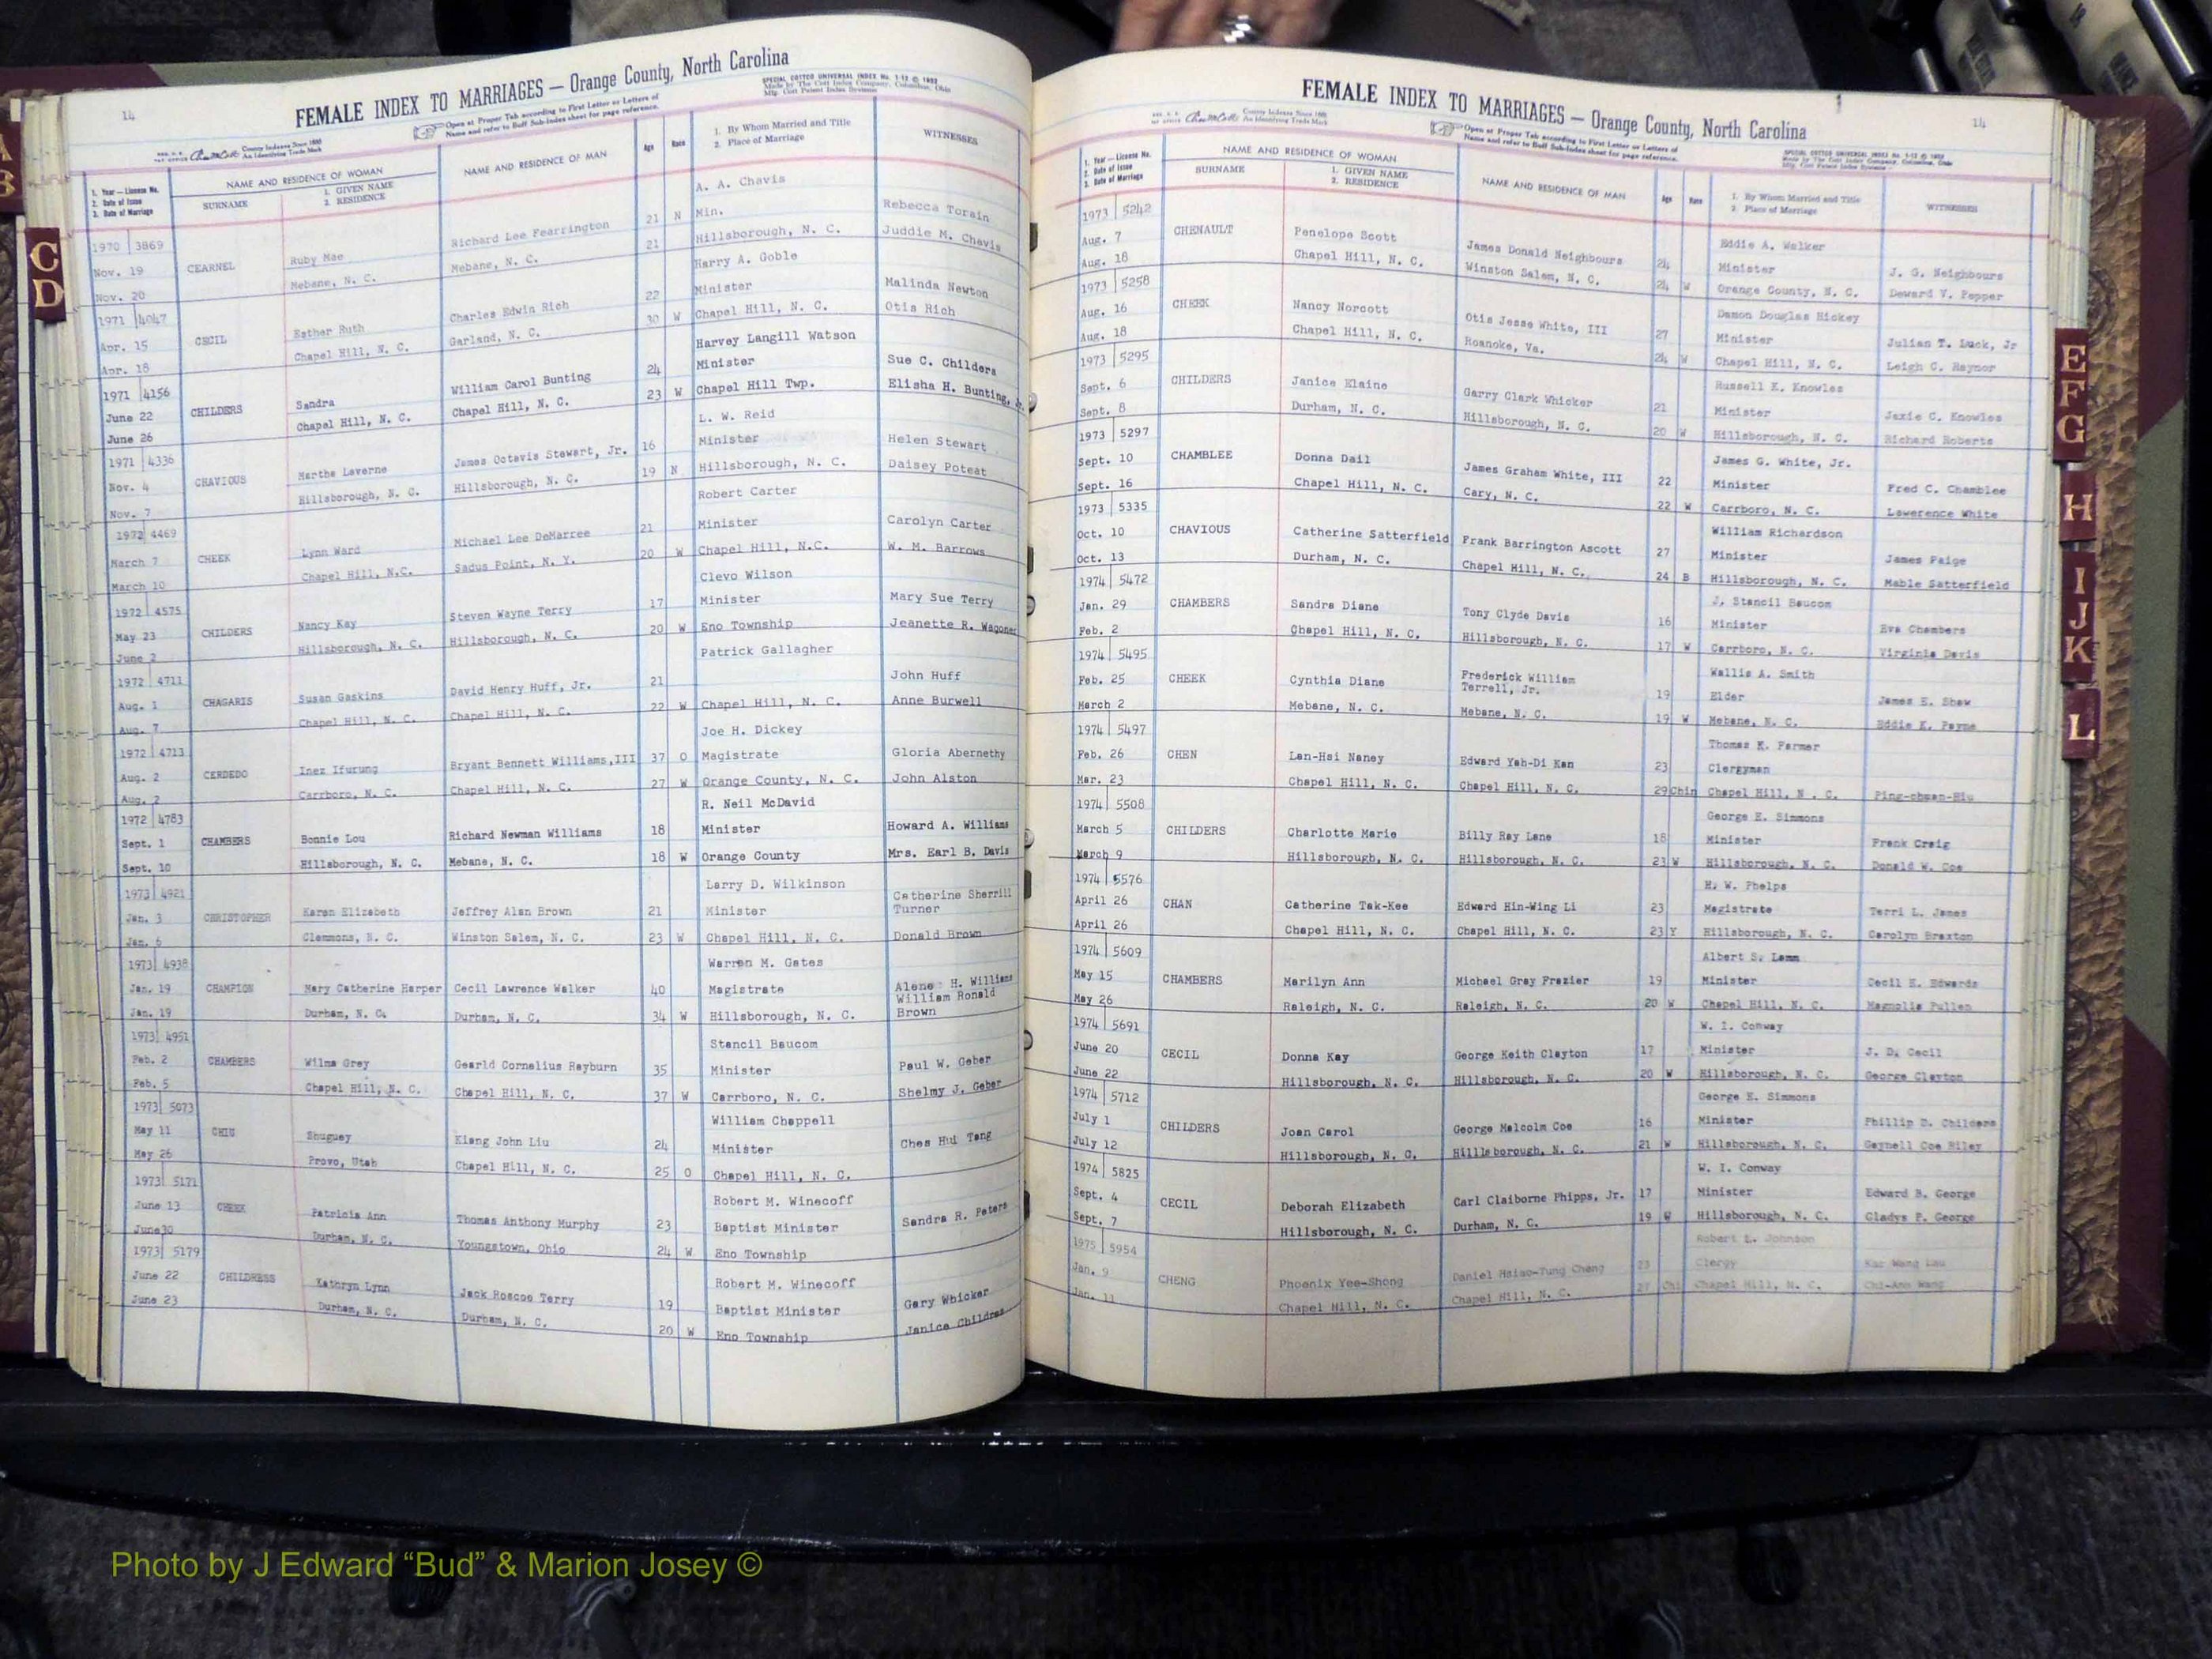 14
FEMALE INDEX TO MARRIAGES — Orange County, North Carolina
Open at Proper Tab according to First Letter or Letters of
Name and refer to Buff Sub-Index sheet for page reference.
SPECIAL COTTCO UNIVERSAL INDEX No. 1-12 © 1952
Made by The Cott Index Company, Columbus, Ohio
County Indexes Since 1888
An Identifying Trade Mark
1. Year — License No.
2. Date of Issue
3. Date of Marriage
NAME AND RESIDENCE OF WOMAN
SURNAME
1. GIVEN NAME
2. RESIDENCE
NAME AND RESIDENCE OF MAN
Age
Race
1. By Whom Married and Title
2. Place of Marriage
WITNESSES
1970 3869 A. A. Chavis
Nov. 19 CEARNEL Ruby Mae Richard Lee Fearrington 21 N Min. Rebecca Torain
Nov. 20 Mebane, N. C. Mebane, N. C. 21 Hillsborough, N. C. Juddie M. Chavis
1971 4047 Harry A. Goble
Apr. 15 CECIL Esther Ruth Charles Edwin Rich 22 Minister Malinda Newton
Apr. 18 Chapel Hill, N. C. Garland, N. C. 30 W Chapel Hill, N. C. Otis Rich
1971 4156 Harvey Langill Watson
June 22 CHILDERS Sandra William Carol Bunting 24 Minister Sue C. Childers
June 26 Chapel Hill, N. C. Chapel Hill, N. C. 23 W Chapel Hill Twp. Elisha H. Bunting, Jr.
1971 4336 L. W. Reid
Nov. 4 CHAVIOUS Martha Laverne James Octavis Stewart, Jr. 16 Minister Helen Stewart
Nov. 7 Hillsborough, N. C. Hillsborough, N. C. 19 N Hillsborough, N. C. Daisey Poteat
1972 4469 Robert Carter
March 7 CHEEK Lynn Ward Michael Lee DeMarree 21 Minister Carolyn Carter
March 10 Chapel Hill, N.C. Sadus Point, N. Y. 20 W Chapel Hill, N.C. W. M. Barrows
1972 4575 Clevo Wilson
May 23 CHILDERS Nancy Kay Steven Wayne Terry 17 Minister Mary Sue Terry
June 2 Hillsborough, N. C. Hillsborough, N. C. 20 W Eno Township Jeanette R. Wagoner
1972 4711 Patrick Gallagher
Aug. 1 CHAGARIS Susan Gaskins David Henry Huff, Jr. 21 John Huff
Aug. 7 Chapel Hill, N. C. Chapel Hill, N. C. 22 W Chapel Hill, N. C. Anne Burwell
1972 4713 Joe H. Dickey
Aug. 2 CERDEDO Inez Ifurung Bryant Bennett Williams,III 37 O Magistrate Gloria Abernethy
Aug. 2 Carrboro, N. C. Chapel Hill, N. C. 27 W Orange County, N. C. John Alston
1972 4783 R. Neil McDavid
Sept. 1 CHAMBERS Bonnie Lou Richard Newman Williams 18 Minister Howard A. Williams
Sept. 10 Hillsborough, N. C. Mebane, N. C. 18 W Orange County Mrs. Earl B. Davis
1973 4921 Larry D. Wilkinson Catherine Sherrill
Jan. 3 CHRISTOPHER Karen Elizabeth Jeffrey Alan Brown 21 Minister Turner
Jan. 6 Clemmons, N. C. Winston Salem, N. C. 23 W Chapel Hill, N. C. Donald Brown
1973 4938 Warren M. Gates
Jan. 19 CHAMPION Mary Catherine Harper Cecil Lawrence Walker 40 Magistrate Alene H. Williams
William Ronald
Jan. 19 Durham, N. C. Durham, N. C. 34 W Hillsborough, N. C. Brown
1973 4951 Stancil Baucom
Feb. 2 CHAMBERS Wilma Grey Gearld Cornelius Rayburn 35 Minister Paul W. Geber
Feb. 5 Chapel Hill, N. C. Chapel Hill, N. C. 37 W Carrboro, N. C. Shelmy J. Geber
1973 5073 William Chappell
May 11 CHIU Shuguey Kiang John Liu 24 Minister Chea Hui Tang
May 26 Provo, Utah Chapel Hill, N. C. 25 O Chapel Hill, N. C.
1973 5171 Robert M. Winecoff
June 13 CHEEK Patricia Ann Thomas Anthony Murphy 23 Baptist Minister Sandra R. Peters
June30 Durham, N. C. Youngstown, Ohio 24 W Eno Township
1973 5179 Robert M. Winecoff
June 22 CHILDRESS Kathryn Lynn Jack Roscoe Terry 19 Baptist Minister Gary Whicker
June 23 Durham, N. C. Durham, N. C. 20 W Eno Township Janice Childres
14
FEMALE INDEX TO MARRIAGES — Orange County, North Carolina
Open at Proper Tab according to First Letter or Letters of
Name and refer to Buff Sub-Index sheet for page reference.
SPECIAL COTTCO UNIVERSAL INDEX No. 1-12 © 1952
County Indexes Since 1888
An Identifying Trade Mark
1. Year — License No.
2. Date of Issue
3. Date of Marriage
NAME AND RESIDENCE OF WOMAN
SURNAME
1. GIVEN NAME
2. RESIDENCE
NAME AND RESIDENCE OF MAN
Age
Race
1. By Whom Married and Title
2. Place of Marriage
WITNESSES
1973 5242 Eddie A. Walker
Aug. 7 CHENAULT Penelope Scott James Donald Neighbours 24 Minister J. G. Neighbours
Aug. 18 Chapel Hill, N. C. Winston Salem, N. C. 24 W Orange County, N. C. Deward V. Pepper
1973 5258 Damon Douglas Hickey
Aug. 16 CHEEK Nancy Norcott Otis Jesse White, III 27 Minister Julian T. Luck, Jr
Aug. 18 Chapel Hill, N. C. Roanoke, Va. 24 W Chapel Hill, N. C. Leigh C. Raynor
1973 5295 Russell K. Knowles
Sept. 6 CHILDERS Janice Elaine Garry Clark Whicker 21 Minister Jaxie C. Knowles
Sept. 8 Durham, N. C. Hillsborough, N. C. 20 W Hillsborough, N. C. Richard Roberts
1973 5297 James G. White, Jr.
Sept. 10 CHAMBLEE Donna Dail James Graham White, III 22 Minister Fred C. Chamblee
Sept. 16 Chapel Hill, N. C. Cary, N. C. 22 W Carrboro, N. C. Lawerence White
1973 5335 William Richardson
Oct. 10 CHAVIOUS Catherine Satterfield Frank Barrington Ascott 27 Minister James Paige
Oct. 13 Durham, N. C. Chapel Hill, N. C. 24 B Hillsborough, N. C. Mable Satterfield
1974 5472 J. Stancil Baucom
Jan. 29 CHAMBERS Sandra Diane Tony Clyde Davis 16 Minister Eva Chambers
Feb. 2 Chapel Hill, N. C. Hillsborough, N. C. 17 W Carrboro, N. C. Virginia Davis
1974 5495 Wallie A. Smith
Feb. 25 CHEEK Cynthia Diane Frederick William
Terrell, Jr. 19 Elder James E. Shaw
March 2 Mebane, N. C. Mebane, N. C. 19 W Mebane, N. C. Eddie K. Payne
1974 5497 Thomas K. Farmer
Feb. 26 CHEN Lan-Hsi Naney Edward Yah-Di Kan 23 Clergyman
Mar. 23 Chapel Hill, N. C. Chapel Hill, N. C. 29 Chin Chapel Hill, N . C. Ping-chuan-Hiu
1974 5508 George E. Simmons
March 5 CHILDERS Charlotte Marie Billy Ray Lane 18 Minister Frank Craig
March 9 Hillsborough, N. C. Hillsborough, N. C. 23 W Hillsborough, N. C. Donald W. Coe
1974 5576 H. W. Phelps
April 26 CHAN Catherine Tak-Kee Edward Hin-Wing Li 23 Magistrate Terri L. James
April 26 Chapel Hill, N. C. Chapel Hill, N. C. 23 Y Hillsborough, N. C. Carolyn Braxton
1974 5609 Albert S. Lamm
May 15 CHAMBERS Marilyn Ann Michael Gray Frazier 19 Minister Cecil E. Edwards
May 26 Raleigh, N. C. Raleigh, N. C. 20 W Chapel Hill, N. C. Magnolia Pullen
1974 5691 W. I. Conway
June 20 CECIL Donna Kay George Keith Clayton 17 Minister J. D. Cecil
June 22 Hillsborough, N. C. Hillsborough, N. C. 20 W Hillsborough, N. C. George Clayton
1974 5712 George E. Simmons
July 1 CHILDERS Joan Carol George Malcolm Coe 16 Minister Phillip D. Childers
July 12 Hillsborough, N. C. Hillsborough, N. C. 21 W Hillsborough, N. C. Gaynell Coe Riley
1974 5825 W. I. Conway
Sept. 4 CECIL Deborah Elizabeth Carl Claiborne Phipps, Jr. 17 Minister Edward B. George
Sept. 7 Hillsborough, N. C. Durham, N. C. 19 W Hillsborough, N. C. Gladys P. George
1975 5954 Robert L. Johnson
Jan. 9 CHENG Phoenix Yee-Shong Daniel Hsiao-Tung Cheng 23 Clergy Kar Wang Lau
Jan. 11 Chapel Hill, N. C. Chapel Hill, N. C. 27 Chi Chapel Hill, N. C. Chi-Ann Wang
C
D
E
F
G
H
I
J
K
L
Photo by J Edward “Bud” & Marion Josey ©